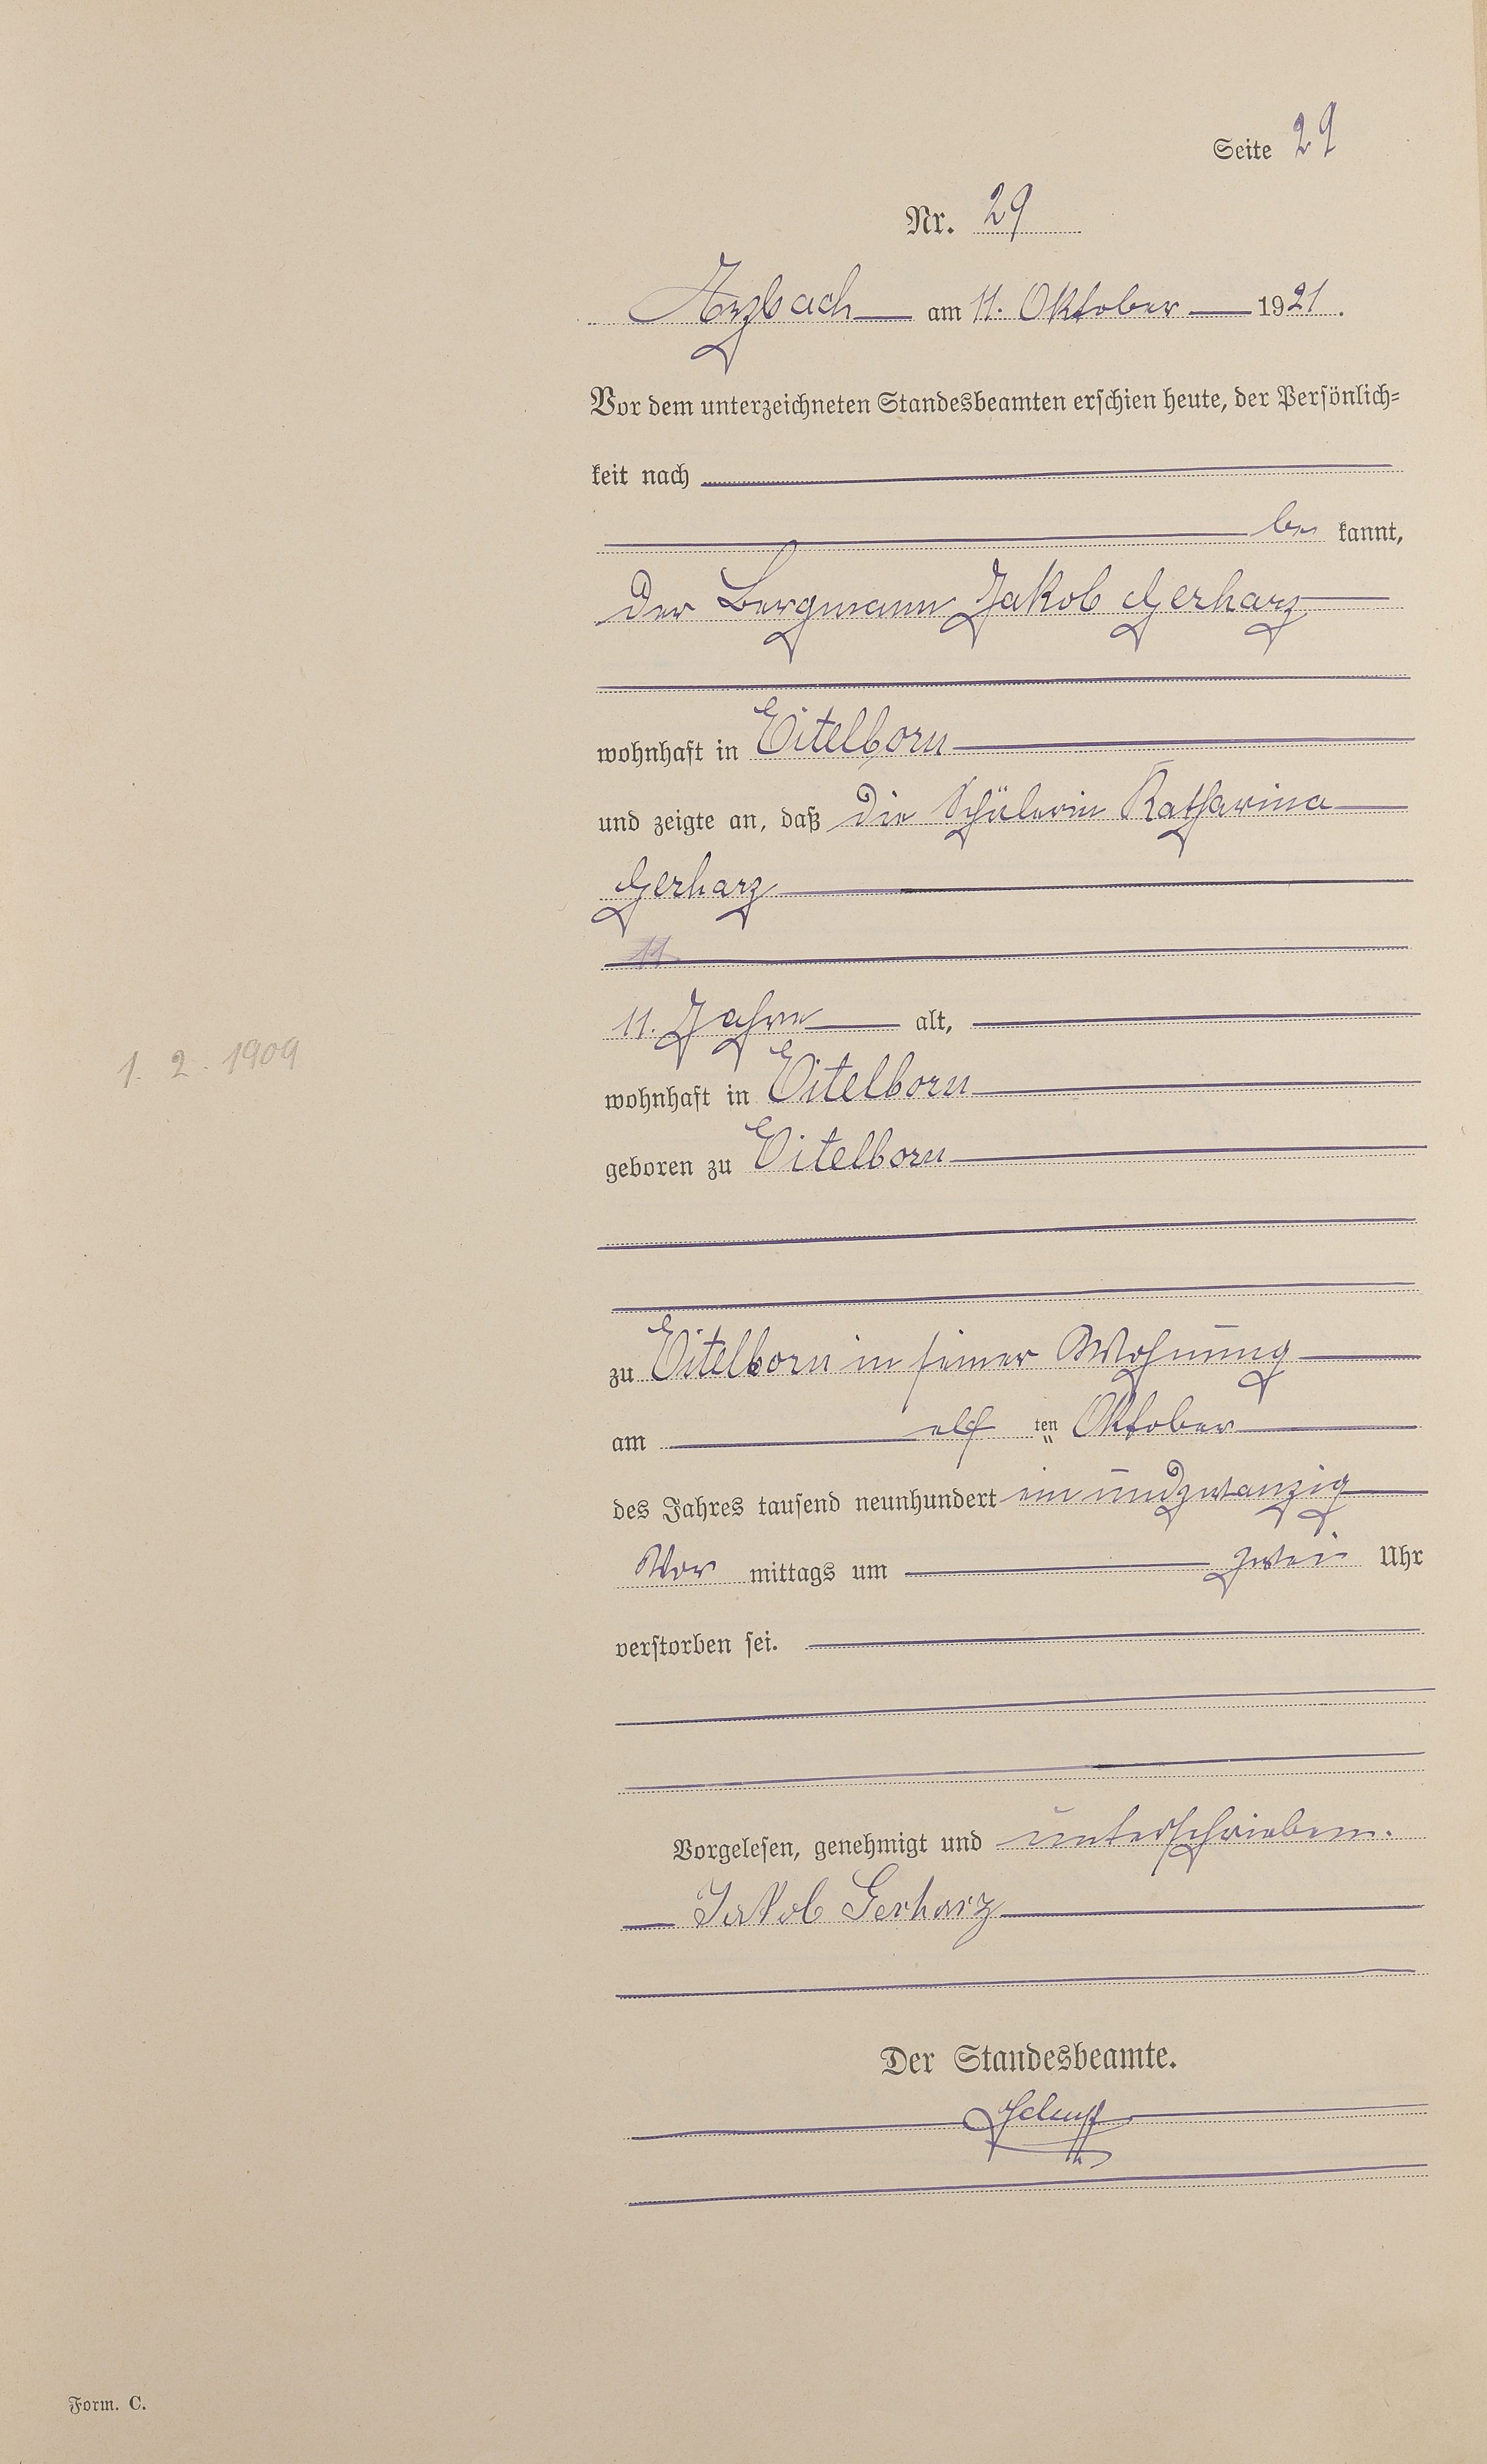 Seite 29
Nr. 29
Arzbach am 11. Oktober 1921.
Vor dem unterzeichneten Standesbeamten erschien heute, der Persönlich=
keit nach
be kannt,
der Bergmann Jakob Gerharz
wohnhaft in Eitelborn
und zeigte an, daß die Schülerin Katharina
Gerharz
11
11. Jahre alt,
1. 2. 1909
wohnhaft in Eitelborn
geboren zu Eitelborn
zu Eitelborn in seiner Wohnung
am elf ten Oktober
des Jahres tausend neunhundert ein undzwanzig
Vor mittags um zwei Uhr
verstorben sei.
Vorgelesen, genehmigt und unterschrieben.
Jakob Gerharz
Der Standesbeamte.
Form. C.